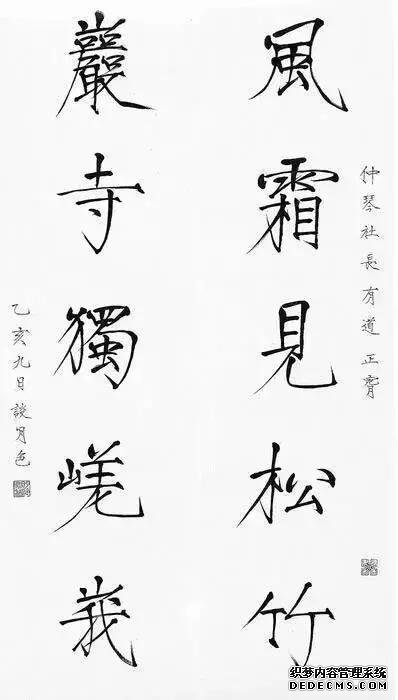 仲琴社長有道 正
風霜見松竹
巖寺獨嵯峩
乙亥九日談月色
织梦内容管理系统
DEDECMS.COM